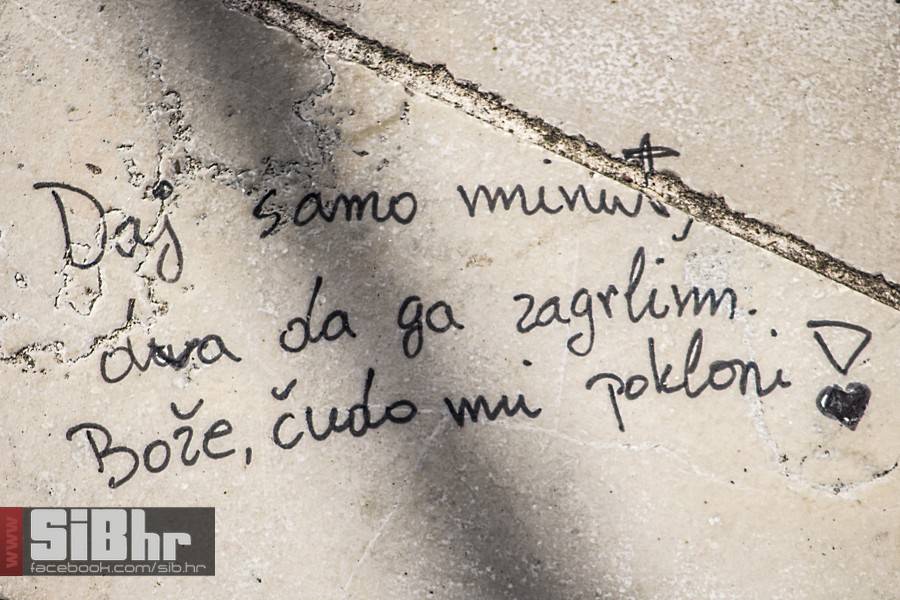 Daj samo minut,
dva da ga zagrlim.
Bože, čudo mi pokloni!
www
SiBhr
facebook.com/sib.hr